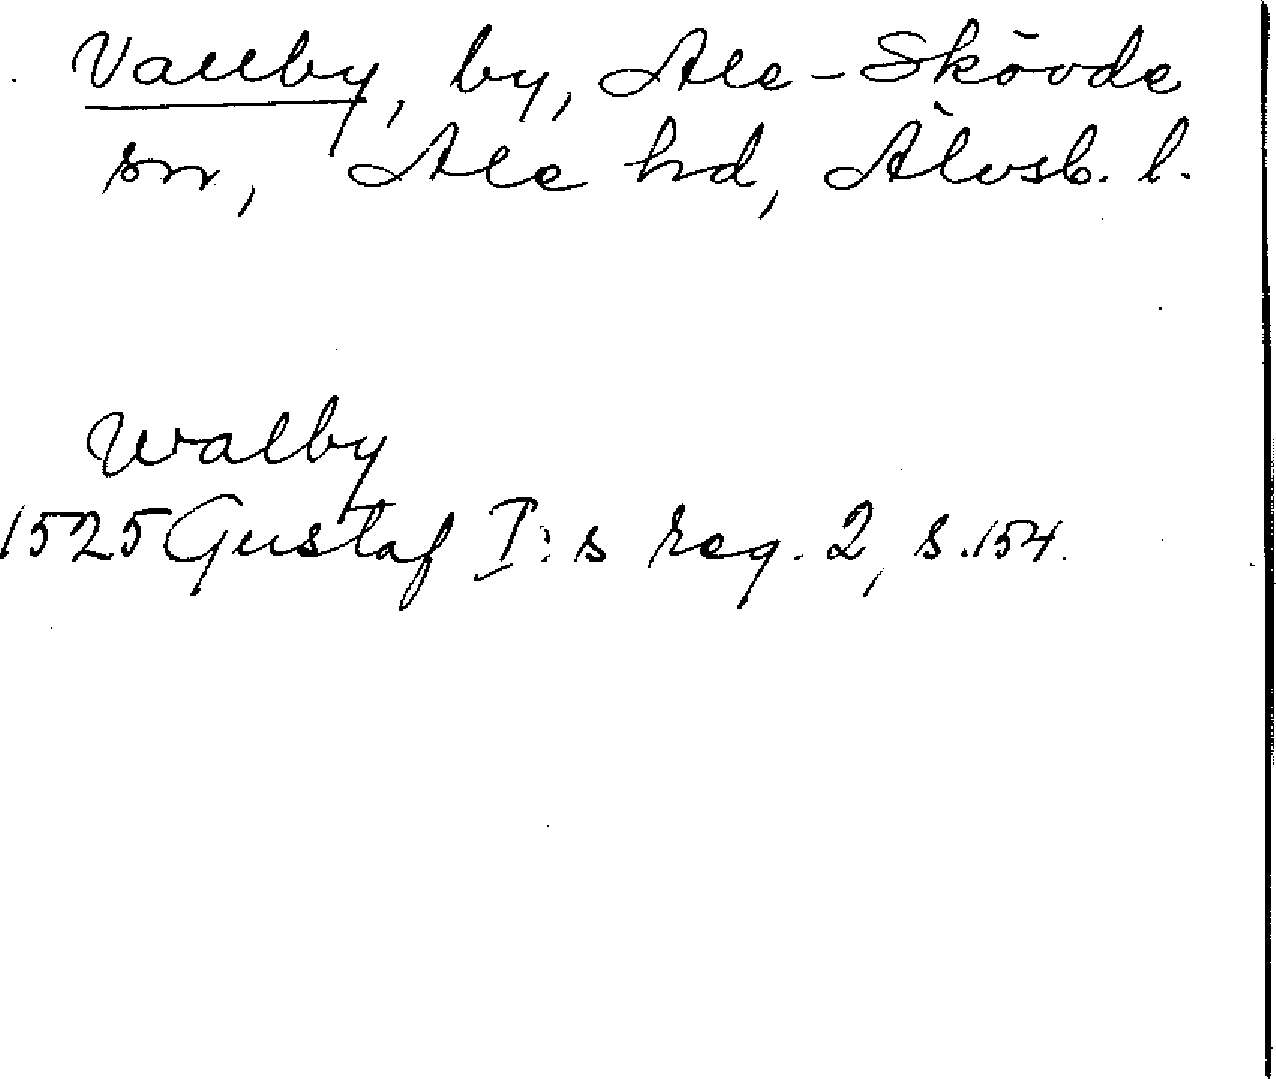 Vallby, by, Ale-Skövde
sn, Ale hd, Älvsb. l.
Walby
1525 Gustaf I:s reg. 2, s. 154.